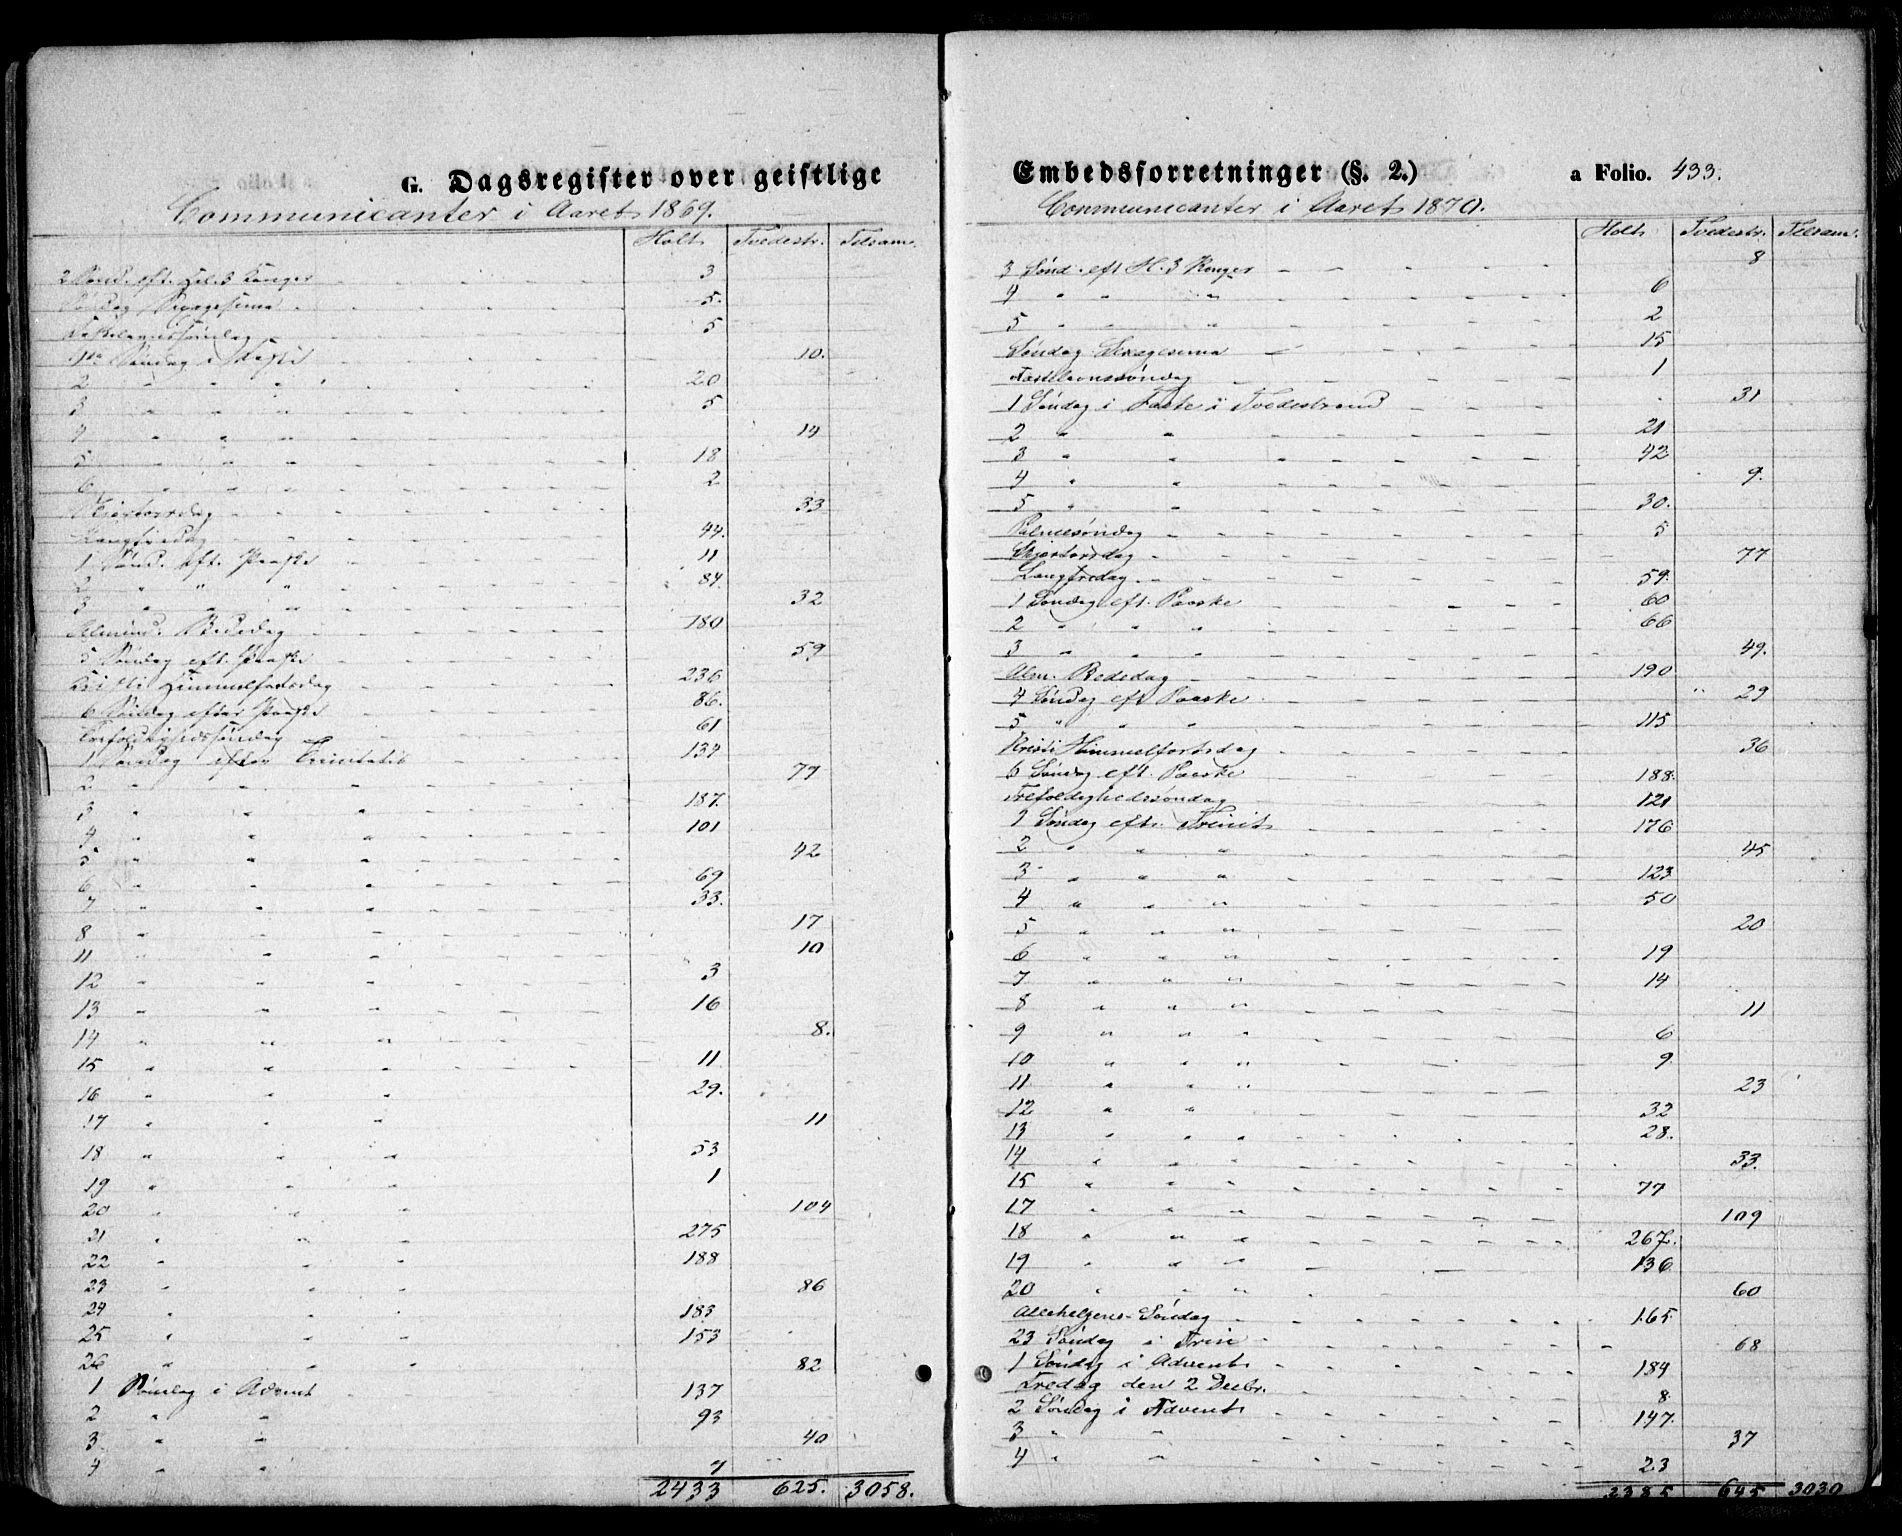 G. Dagsregister over geistlige
Communicanter i Aaret 1869.
Holt Tvedestr. Tilsam.
2 Sønd. eft. Hel. 3 Konger 3
Søndag Sexagesima 5.
Fastelavnssøndag 5
1ste Søndag i Faste 10.
2 " " " 20
3 " " " 5
4 " " " 14
5 " " " 18
6 " " " 2
Skjærtorsdag 33
Langfredag 44.
1 Sønd. eft. Paaske 11
2 " " " 84.
3 " " " 32
Almind. Bededag 180
5 Søndag eft. Paaske 59
Kristi Himmelfartsdag 236
6 Søndag efter Paaske 86.
Trefoldighedssøndag 61
1 Søndag efter Trinitatis 134
2 " " " 77
3 " " " 187.
4 " " " 101
5 " " " 42
6 " " " 69
7 " " " 33.
8 " " " 17
11 " " " 10
12 " " " 3
13 " " " 16
14 " " " 8.
15 " " " 11
16 " " " 29.
17 " " 11
18 " " " 53
19 " " " 1
20 " " " 104
21 " " " 275
22 " " " 188
23 " " " 86
24 " " " 183
25 " " " 153
26 " " " 82
1 Søndag i Advent 137
2 " " 93
3. " " 40
4 " " 7
2433 625. 3058.
Embedsforretninger (§. 2.) a Folio. 433.
Communicanter i Aaret 1870.
Holt Tvedestr. Tilsam.
3 Sønd. eft H. 3 Konger 8
4 " " " 6
5 " " " 2
Søndag Sexagesima 15
Fastelavnssøndag 1
1 Søndag i Faste i Tvedestrand 31
2 " " 21
3 " " 42
4 " " 9.
5 " " 30.
Palmesøndag 5
Skjærtorsdag 77
Langfredag 59.
1 Søndag eft. Paaske 60
2 " " " 66
3 " " " 49.
Alm. Bededag 190
4 Søndag eft Paaske 29
5 " " " 115
Kristi Himmelfartsdag 36
6 Søndag eft. Paaske 188.
Trefoldighedssøndag 121
1 Søndag eft. Trinit. 176
2 " " " 45
3 " " " 123
4 " " " 50
5 " " " 20
6 " " " 19
7 " " " 14
8 " " " 11
9 " " " 6
10 " " " 9
11 " " " 23
12 " " 32
13 " " " 28.
14 " " " 33.
15 " " " 77
17 " " " 109
18 " " " 267.
19 " " " 136
20 " " " 60
Allehelgens-Søndag 165
23 Søndag i Trin 68
1 Søndag i Advent 184
Fredag den 2 Decbr. 8
2 Søndag i Advent 147.
3 " " 37
4 " " 23
2385 645 3030